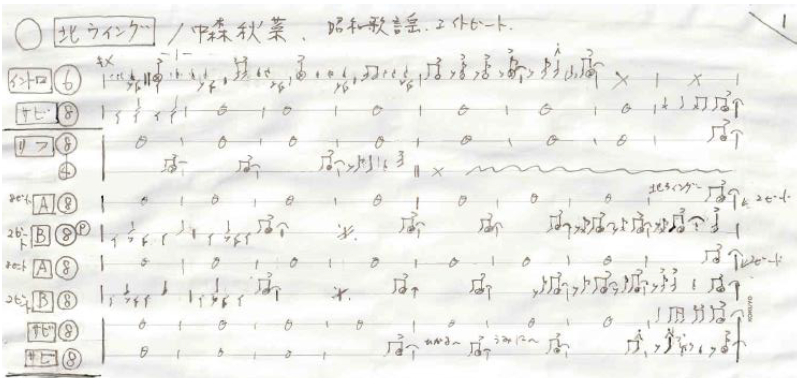 北ウイング / 中森秋菜. 昭和歌謡. エイトビート. 1
4x
イントロ 6
サビ 8
リフ 8
4
北ウイングー
8ビート A 8 2ビート
2ビート B 8 P
8ビート A 8 2ビート
2ビート B 8
サビ 8
サビ 8
KOKUYO